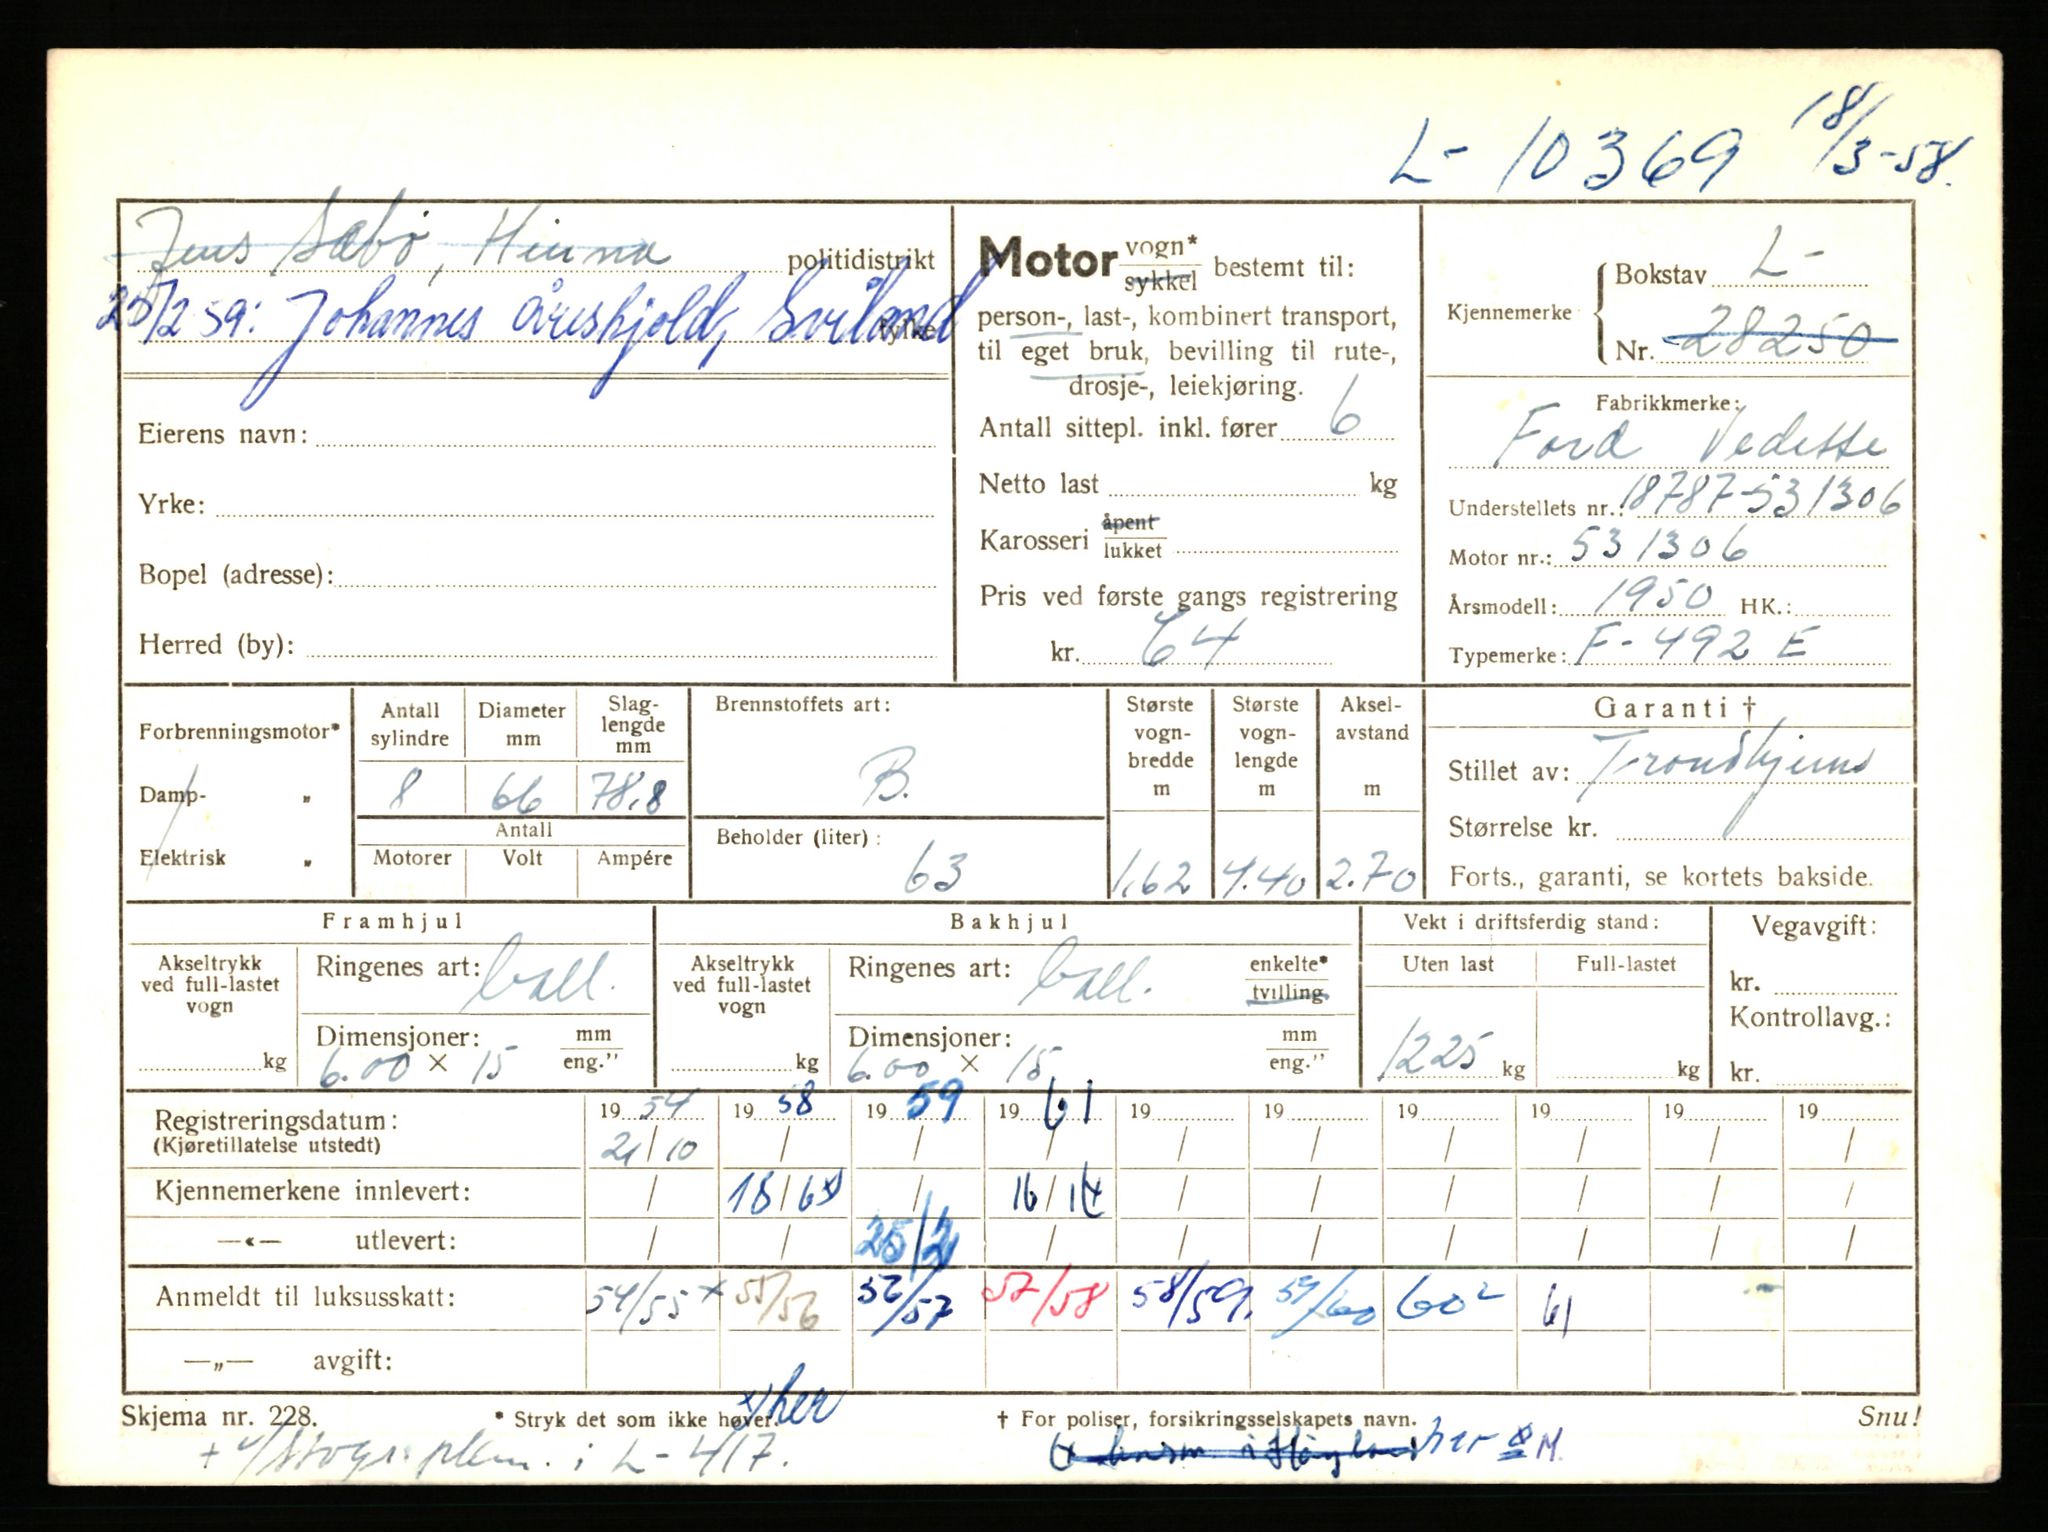 L- 10369 18/3-58.
Jens Sæbø, Hinna politidistrikt
25/2 59: Johannes Øreskjold, Sviland fylke
Eierens navn:
Yrke:
Bopel (adresse):
Herred (by):
Motor vogn* sykkel bestemt til:
person-, last-, kombinert transport,
til eget bruk, bevilling til rute-,
drosje-, leiekjøring.
Antall sittepl. inkl. fører 6
Netto last kg
Karosseri åpent lukket
Pris ved første gangs registrering
kr. 64
Kjennemerke Bokstav L-
Nr. 28250
Fabrikkmerke:
Ford Vedette
Understellets nr.: 18787-531306
Motor nr.: 531306
Årsmodell: 1950 HK.:
Typemerke: F-492 E
Forbrenningsmotor*
Damp- „
Elektrisk „
Antall sylindre Diameter mm Slag-lengde mm
8 66 78,8
Antall
Motorer Volt Ampére
Brennstoffets art:
B.
Beholder (liter):
63
Største vogn-bredde m Største vogn-lengde m Aksel-avstand m
1,62 4.40 2.70
Garanti †
Stillet av: Trondhjems
Størrelse kr.
Forts., garanti, se kortets bakside.
Framhjul
Akseltrykk ved full-lastet vogn
kg
Ringenes art: ball.
Dimensjoner: mm eng."
6.00 × 15
Bakhjul
Akseltrykk ved full-lastet vogn
kg
Ringenes art: ball. enkelte* tvilling
Dimensjoner: mm eng."
6.00 × 15
Vekt i driftsferdig stand:
Uten last Full-lastet
1225 kg kg
Vegavgift:
kr.
Kontrollavg.:
kr.
Registreringsdatum: 19 54 19 58 19 59 19 61 19 19 19 19 19 19
(Kjøretillatelse utstedt) 21/10 / / / / / / / / /
Kjennemerkene innlevert: / 18/6 / 16/1 / / / / / /
—«— utlevert: / / 25/2 / / / / / / /
Anmeldt til luksusskatt: 54/55 x 55/56 56/57 57/58 58/59. 59/60 60 61
—„— avgift:
Skjema nr. 228. * Stryk det som ikke høver. x/ her † For poliser, forsikringsselskapets navn. Snu!
i L-417. her M.